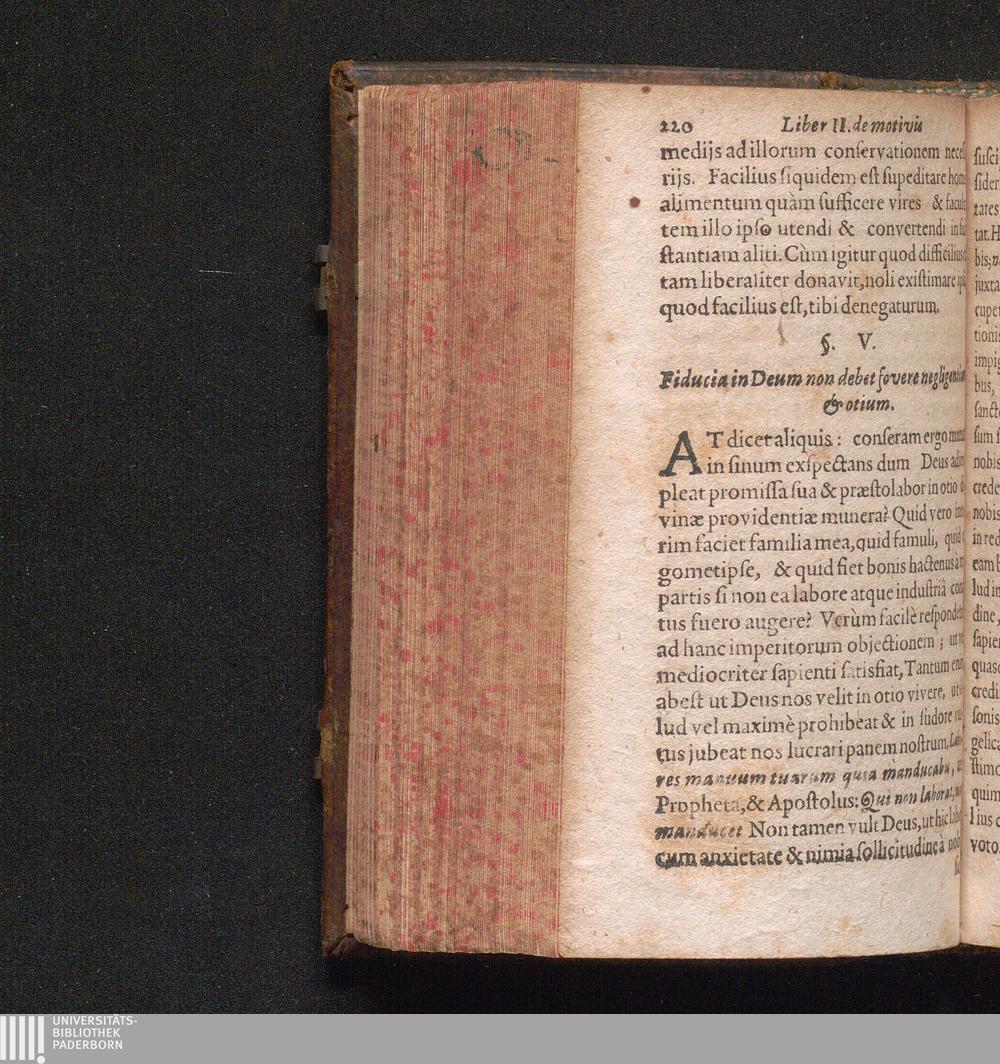 220 Liber II. de motivis
medijs ad illorum conſervationem neceſ
rijs. Facilius ſiquidem eſt ſupeditare hom
alimentum quàm ſufficere vires & facul
tem illo ipſo utendi & convertendi in ſu
ſtantiam aliti. Cùm igitur quod difficilius
tam liberaliter donavit, noli exiſtimare ip
quod facilius eſt, tibi denegaturum.
§. V.
Fiducia in Deum non debet fovere negligentiam
& otium.
AT dicet aliquis: conſeram ergo manus
in ſinum exſpectans dum Deus adim
pleat promiſſa ſua & præſtolabor in otio d
vinæ providentiæ munera? Quid vero in
rim faciet familia mea, quid famuli, quid e
gometipſe, & quid fiet bonis hactenus
partis ſi non ea labore atque induſtriâ con
tus fuero augere? Verùm facilè reſpondet
ad hanc imperitorum objectionem; ut
mediocriter ſapienti ſatisfiat, Tantum enim
abeſt ut Deus nos velit in otio vivere, ut
lud vel maximè prohibeat & in ſudore
tus jubeat nos lucrari panem noſtrum.
res manuum tuarum quia manducabis,
Propheta, & Apoſtolus: Qui non laborat,
manducet Non tamen vult Deus, ut hic
cum anxietate & nimia ſollicitudine à
ſuſci
ſider
tates
tat. H
bis;
juxta
cupe
tionis
impig
bus,
ſanct
ſum
nobis
crede
nobis
in red
eam
lud in
dine,
ſapien
quas
credi
ſonis
gelica
ſtimo
quim
voto
UNIVERSITÄTS-
BIBLIOTHEK
PADERBORN